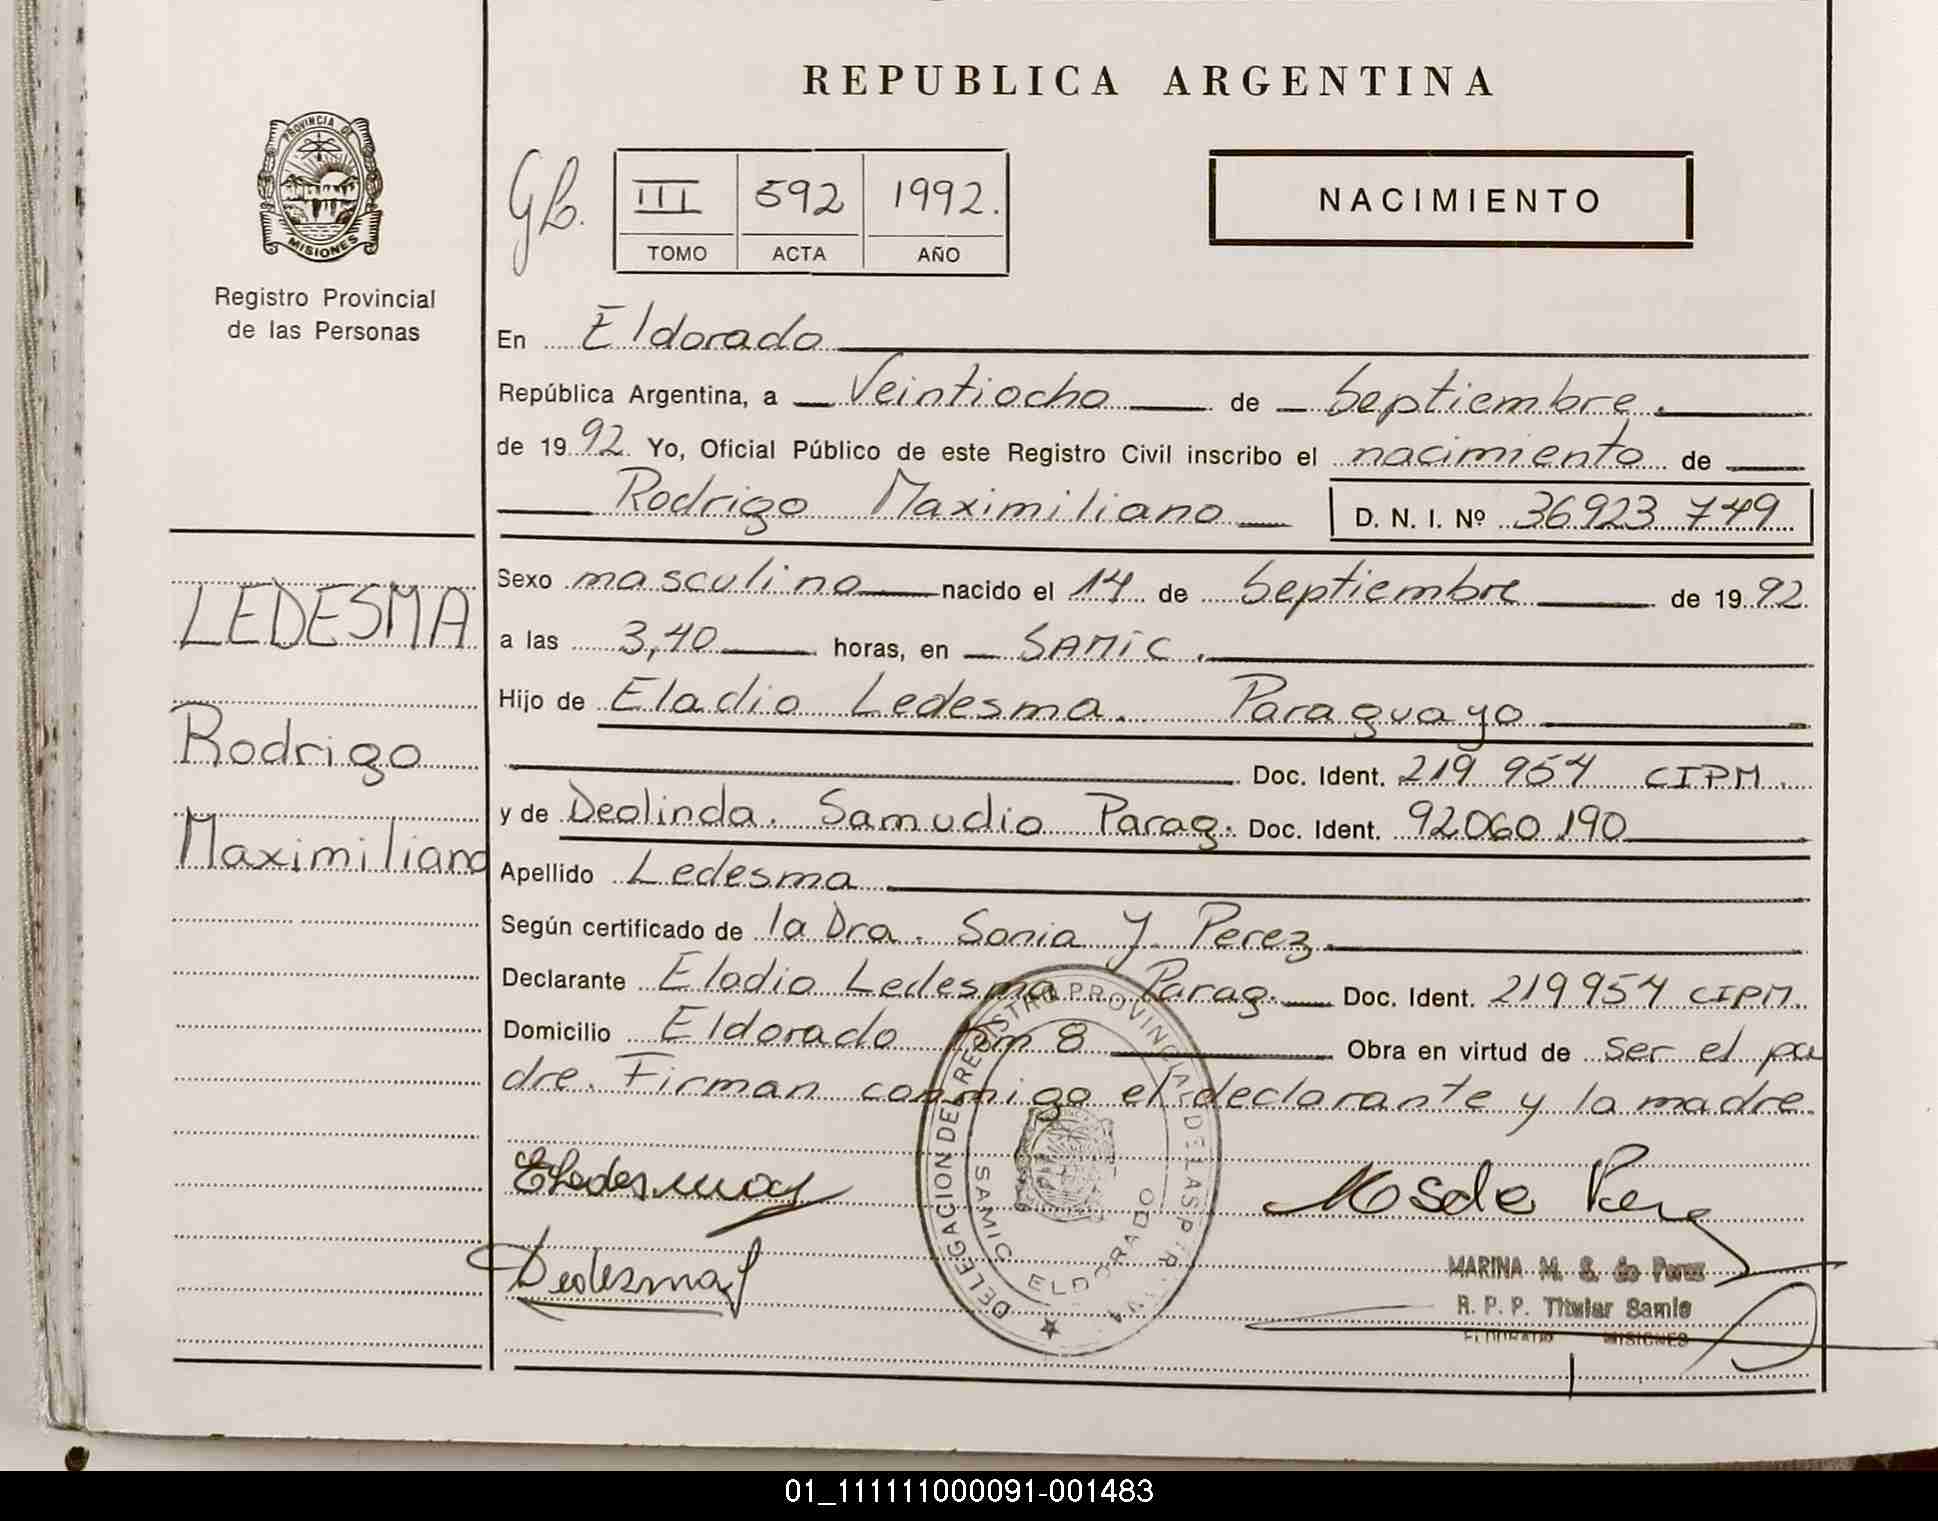 REPUBLICA ARGENTINA
PROVINCIA DE
MISIONES
Registro Provincial
de las Personas
III 592 1992.
TOMO ACTA AÑO
NACIMIENTO
En Eldorado
República Argentina, a Veintiocho de Septiembre.
de 1992. Yo, Oficial Público de este Registro Civil inscribo el nacimiento de
Rodrigo Maximiliano D. N. I. Nº 36923 749
LEDESMA
Rodrigo
Maximiliano
Sexo masculino nacido el 14 de Septiembre de 1992.
a las 3,40 horas, en SAMIC.
Hijo de Eladio Ledesma. Paraguayo
Doc. Ident. 219 954 CIPM.
y de Deolinda. Samudio Parag. Doc. Ident. 92060190
Apellido Ledesma
Según certificado de la Dra. Sonia Y. Perez
Declarante Eladio Ledesma Parag. Doc. Ident. 219954 CIPM.
Domicilio Eldorado Km 8 Obra en virtud de ser el pa
dre. Firman conmigo el declarante y la madre.
DELEGACION DEL REGISTRO PROVINCIAL DE LAS P
SAMIC ELDORADO
MARINA M. S. de Perez
R. P. P. Titular Samic
ELDORADO MISIONES
01_111111000091-001483